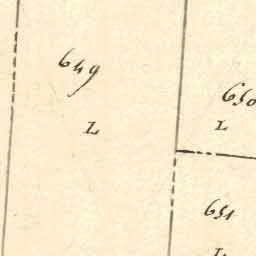 649
L
650
L
651
L